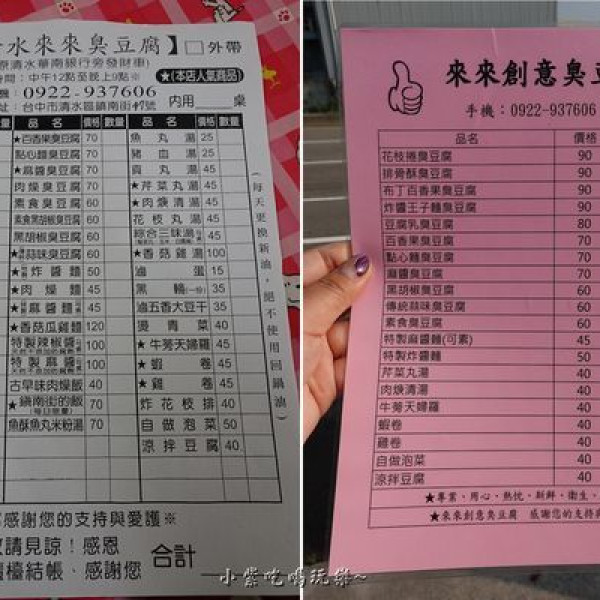 水來來臭豆腐】□外帶
原清水華南銀行旁發財車)
時間：中午12點至晚上9點※ ★(本店人氣商品)
機：0922-937606
址：台中市清水區鎮南街49號 內用____桌
數量 品名 價格 數量 品名 價格 數量
★百香果臭豆腐 70 魚丸湯 25
點心麵臭豆腐 70 豬血湯 25
★麻醬臭豆腐 70 貢丸湯 45
肉燥臭豆腐 70 ★芹菜丸湯 45
素食臭豆腐 60 ★肉焿清湯 45
素食黑胡椒臭豆腐 60 花枝丸湯 45
黑胡椒臭豆腐 60 綜合三味湯 45
★蒜味臭豆腐 60 ★香菇雞湯 100
★炸醬麵 50 滷蛋 15
★肉燥麵 45 黑輪(一份) 35
★麻醬麵 45 滷五香大豆干 35
★香菇瓜雞麵 120 燙青菜 40
特製辣椒醬 100 ★牛蒡天婦羅 45
特製麻醬 100 ★蝦卷 45
古早味肉燥飯 40 ★雞卷 45
★鎮南街的飯 70 炸花枝排 40
魚酥魚丸米粉湯 70 自做泡菜 50
涼拌豆腐 40
(每天更換新油，絕不使用回鍋油)
感謝您的支持與愛護※
敬請見諒！感恩
櫃檯結帳、感謝您 合計____
來來創意臭豆
手機：0922-937606
品名 價格
花枝捲臭豆腐 90
排骨酥臭豆腐 90
布丁百香果臭豆腐 90
炸醬王子麵臭豆腐 90
豆腐乳臭豆腐 80
百香果臭豆腐 70
點心麵臭豆腐 70
麻醬臭豆腐 70
黑胡椒臭豆腐 60
傳統蒜味臭豆腐 60
素食臭豆腐 60
特製麻醬麵(可素) 45
特製炸醬麵 50
芹菜丸湯 40
肉焿清湯 40
牛蒡天婦羅 40
蝦卷 40
雞卷 40
自做泡菜 40
涼拌豆腐 40
★專業、用心、熱忱、新鮮、衛生、
★來來創意臭豆腐 感謝您的支持與
小紫吃喝玩樂~